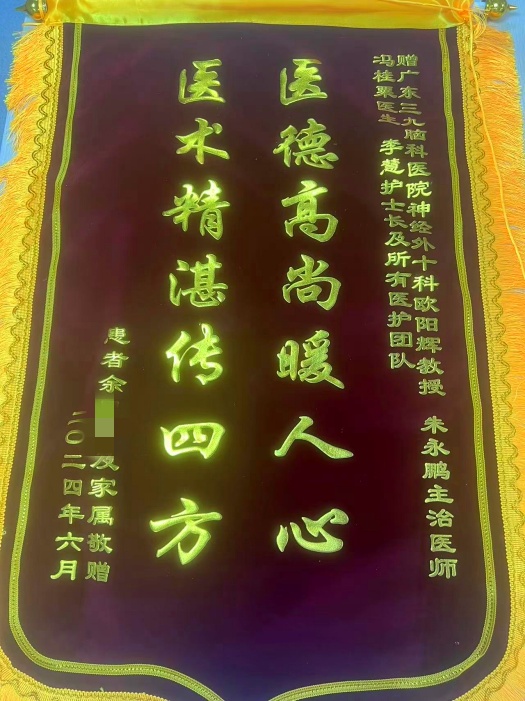 赠广东三九脑科医院神经外十科欧阳辉教授 朱永鹏主治医师
冯桂聚医生 李慧护士长及所有医护团队
医德高尚暖人心
医术精湛传四方
患者余 及家属敬赠
二〇二四年六月